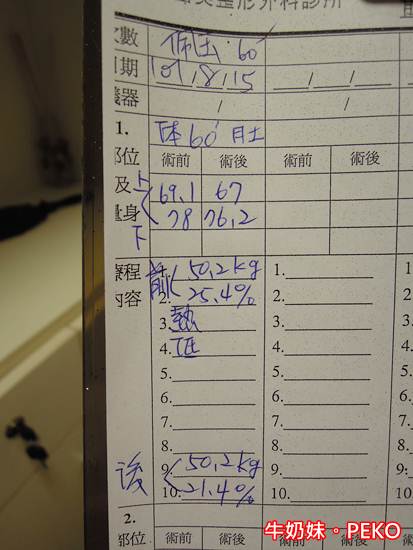 整形外科診所
次數 60
日期 101/8/15 / /
機器 / /
1. 60' 肚
部位 術前 術後 術前 術後
及 上 69.1 67
量身 下 78 76.2
療程 前 1. 50.2kg 1.
內容 2. 25.4% 2.
3. 熱 3.
4. 4.
5. 5.
6. 6.
7. 7.
8. 8.
後 9. 50.2kg 9.
10. 21.4% 10.
2.
部位 術前 術後 術前 術後
牛奶妹·PEKO